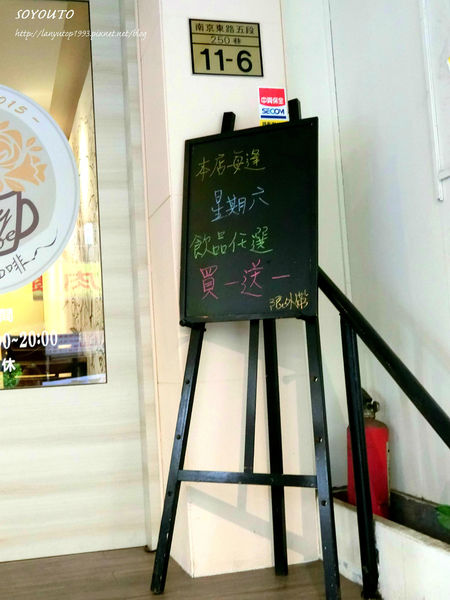 SOYOUTO
http://lanyutop1993.pixnet.net/blog
南京東路五段
250巷
11-6
中興保全
SECOM
2015~
本店每逢
星期六
飲品任選
買一送一
限外帶
~20:00
休